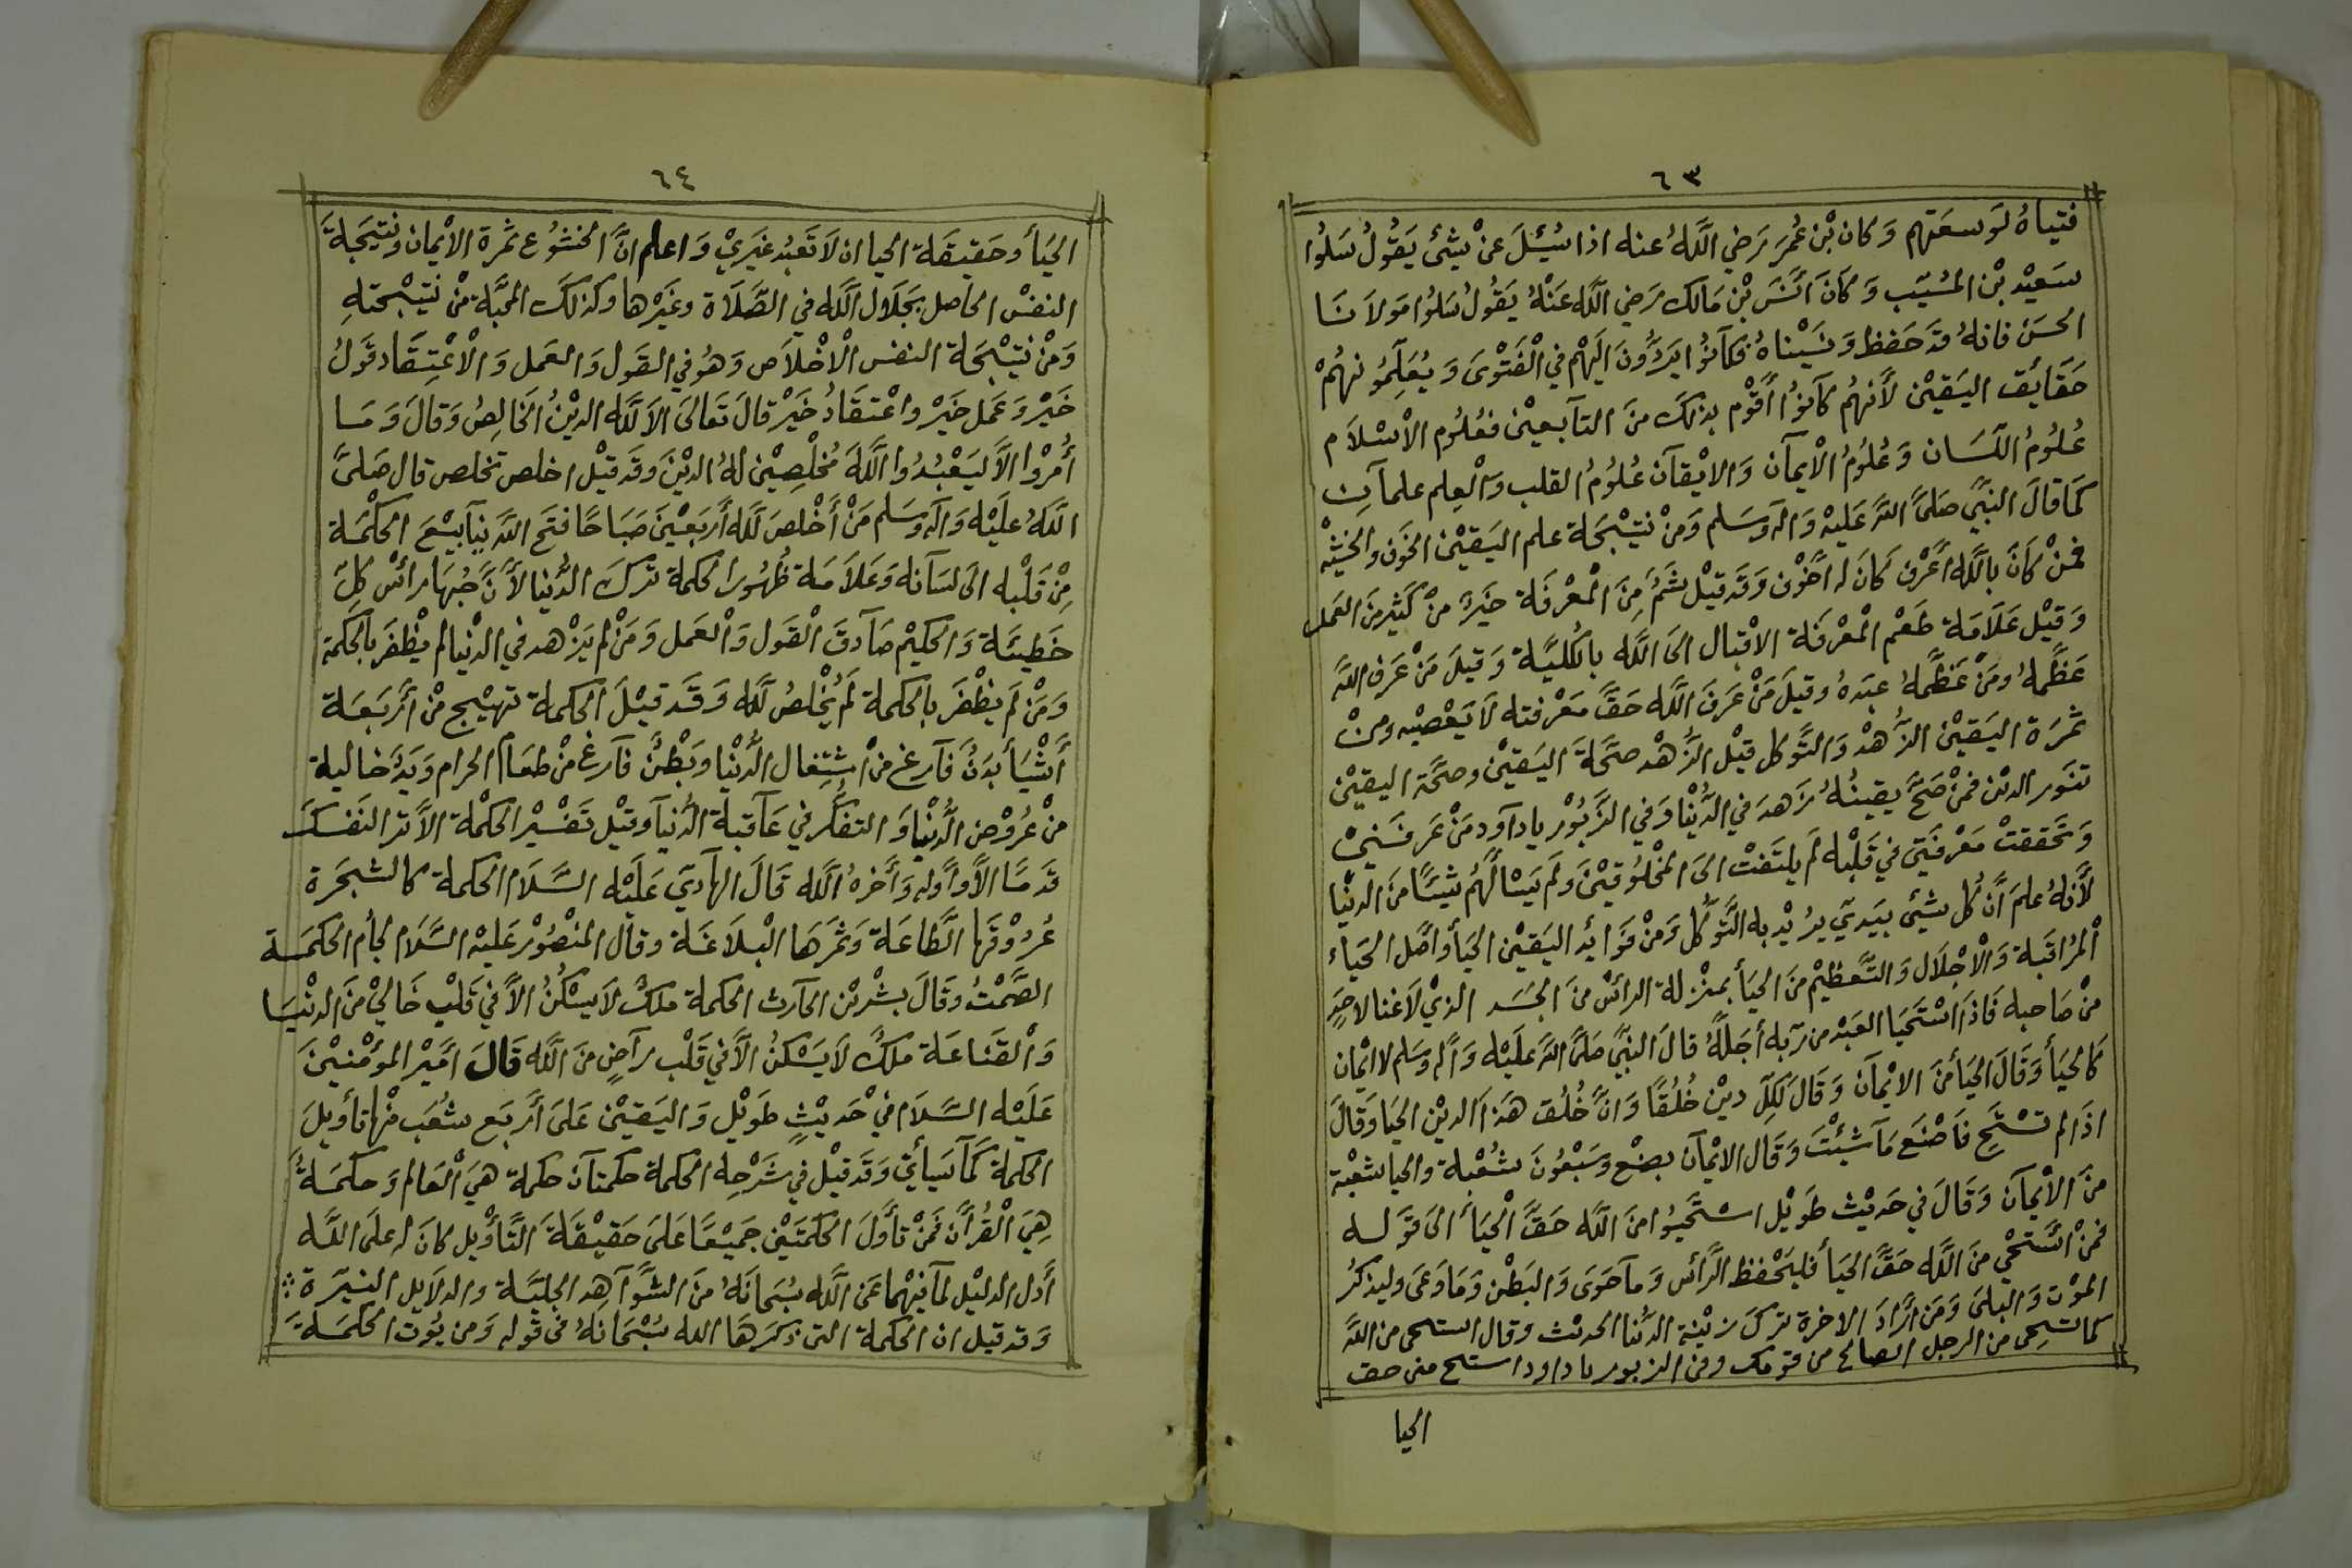 ٦٣
فتياهُ لوَسعَتهم وَكان بْن عُمرَ رَضي اللَّهُ عنه اذا سُئِلَ عنْ شيْئ يَقُولُ سَلُوا
سَعيْد بْن المسُيّب وَكَانَ انَسَ بْن مَالك رَضي اللَّه عَنْهُ يَقُولُ سَلوُا مَولاَنَا
الحسَن فانهُ قدَ حَفظ وَنسَيْناهُ فكَانوُا يَردُّونَ اليَهمْ في الْفَتْوىَ وَيُعَلِّمُونهُمْ
حَقَايَق اليَقيْن لأَنهُم كاَنوُا أقوْم بذلكَ منَ التآبعيْن فعُلوُم الاْسْلاَم
عُلوُمُ اللّسَان وَعُلوُمُ الاْيمآن وَالايْقآن عُلوُمُ القلب وَالْعِلم علمآنِ
كمَا قالَ النبيَّ صَلىَّ اللَّه عَليْه وَاله وَسَلم وَمنْ نتيْجَة علم اليَقيْن الخوَف والخشيْه
فمَنْ كانَ باللَّه أعَرْف كَانَ له اخَوْف وَقدَ قيْل شَمُّ منَ الْمعْرفَة خيَرٌ منْ كَثيْر منَ العَمل
وَقيْل عَلاَمَة طَعْم الْمعْرفَة الاقْبال الىَ اللَّه بالكُليَّة وَقيلَ مَنْ عَرف اللَّه
عَظَّمهُ ومَنْ عَظَّمهُ عبَدهُ وقيلَ مَنْ عَرفَ اللَّه حَقَّ مَعْرفته لاَ يَعْصيْه ومنْ
ثمَرَة اليَقيْن الزُّهْد وَالتَّوكل قيْل الزُّهْد صحَّةَ اليَقيْن وصحَّة اليقيْن
تنوَر الديْن فمنْ صَحَّ يقينُهُ زَهدَ في الدُّنْيا وَفي الزَّبوُرْ ياداَود مَنْ عَرفَنيْ
وَتحَققتْ مَعْرفَتي في قَلْبه لمَ يلتَفتْ الىَ المخْلوُقيْنَ وَلمَ يَسْالهُم شيئًا منَ الدنْيا
لأَنهُ علمَ انَّ كُل شئَ بيَديّ يرُيْد به التَّوكُّل وَمنْ فوَائد اليَقيْن الحيَأ واصَّل الحيَاء
الْمرُاقبَة وَالْاجْلاَل وَالتَّعظيْم منَ الحيَأ بمنْزلة الرائسْ منَ الجسَد الذيْ لاَغنا لاحَدٍ
منْ صَاحبه فَاذَا اسْتَحيَا العَبْد من ربّه أجَلهُّ قالَ النبيَّ صَلىَّ اللَّه عَلَيْه وَاله وسَلم لا ايْمان
كَالحيَأ وَقَالَ الحيَأ منَ الايْمآن وَقَالَ لِكلّ دينْ خُلُقًا وَانَّ خُلُق هَذا الديْن الحيَا وَقَالَ
اذَا لم تسْتَحِ فاَصْنعَ مَآ شئْتَ وَقَال الايْمآن بضْع وسَبْعُونَ شُعْبة والحيا شعْبة
منَ الاْيمآن وَقَالَ في حَديْث طَويْل استَحيوُا منَ اللَّه حَقَّ الْحيَأ الىَ قوَّله
فمَنْ اسْتَحْي منَ اللَّه حَقَّ الحيَأ فليَحْفظ الرَّائس وَمآحَوىَ وَالبَطْن وَمَاوَعىَ وليذكرُ
الموْت وَالبلىَ وَمَن ارَّادَ الاخرة ترَكَ زيْنة الدُّنيا الحديْث وقال استحي من اللَّه
كما تستحِي من الرجل الصالح من قومك وفي الزبور يا داود استحِ مني حق
الحيا
٦٤
الحيَأ وحَقيَقة الحيا ان لاَ تَعبُد غيَريْ وَاعلم انَّ الخشوُع ثمرة الايْمان ونتيْجَةَ
النفسْ الحاصل بجَلاَل اللَّه في الصَّلاَة وغيَرْها وكذلكَ المحبَّة منْ نتيْجتهِ
وَمنْ نتيْجَة النفس الْاخْلاَص وَهُو في القوَل وَالعَمل وَالاْعْتِقَاد قوَلُ
خَيْر وَعَمل خَيرْ واعْتقَادُ خَيرْ قالَ تَعالىَ الاَ للَّه الديْنُ الخَالِصُ وَقَالَ وَمَا
أمُرْوا الاَّ ليَعْبُدُوا اللَّهَ مُخْلِصِيْن لهُ الديْنَ وقَد قيْل اخلص تخلص قال صَلىَّ
اللَّهُ علَيْه وَاله وسَلم مَنْ أخْلصَ للَّه أرَبعَيْنَ صَبَاحًا فتَح اللَّه ينآبيْعَ الحكْمَة
مِنْ قَلْبه الىَ لسَآنه وَعَلاَمَة ظُهُور الحكمة ترَكَ الدُّنيا لأَنَّ حُبهَا رائسْ كلِّ
خَطيئَة وَالحكيْم صَآدقَ الْقَول وَالْعَمل وَمَنْ لم يَزْهد في الدنْيا لم يظْفرَ بالحكمَة
وَمَنْ لمَ يظْفرَ بالحكمة لمَ يُخْلصُ للَّه وَقَد قيْلَ الحكمة تهيْج منْ أرَّبعَة
أشْيَأ بَدَنٌ فآرغ منْ اشتِغال الدُّنْيا وبَطْنٌ فآرغ منْ طعَام الحرام وَيَدٌ خالية
منْ عُرُوْض الدُّنْيا وَالتفكُّر في عَاقبة الدُّنيآ وقيْل تَفْسيْر الحكْمة الاَّ تر النَفسكَ
قدمًا الاَّ وأوَّله وَأخرهُ اللَّه قَالَ الهآديَ عَليْه السَّلاَم الحكمة كالشجَرَة
عُروْقهَا الطَّاعَة وَثمَرهَا الْبلاَغَة وقال المنْصُوْر عَليْه السَّلاَم لجأم الحكمَة
الصَّمْتُ وقَالَ بشْر بْن الحآرث الحكمة ملكٌ لاَ يسْكنُ الاَّ في قَلبْ خَاليْ منَ الدنْيَا
وَالْقَناعَة ملكٌ لاَ يَسْكنُ الاَّ في قَلْب رآضٍ منَ اللَّه قَالَ امَيْر الموْمْنيْنَ
عَلَيْه السَّلاَم فيْ حَديْثٍ طوَيْل وَاليَقيْن عَلىَ أرَبعَ شُعَب منْها تأويلَ
الحكمة كمَآ سَيأتيَ وَقَد قيْل في شَرْحه الحكمة حكمتآن حكمة هيَ الْعَالم وَحكمَة
هِيَ الْقُرآن فمَنْ تأوَّلَ الحكمَتيَنْ جَميْعًا عَلىَ حَقيْقةَ التَّأوْيل كانَ له علىَ اللَّه
أدَل الدليْل لمآ فيْهما عَن اللَّه سُبْحَانَهُ منَ الشوَآهِد الجليَّة والدلاَيل النيّرَة
وَقد قيل ان الحكمة التي ذكرَهَا الله سُبْحَانهُ في قَوله وَمن يُوت الحكمَةَ